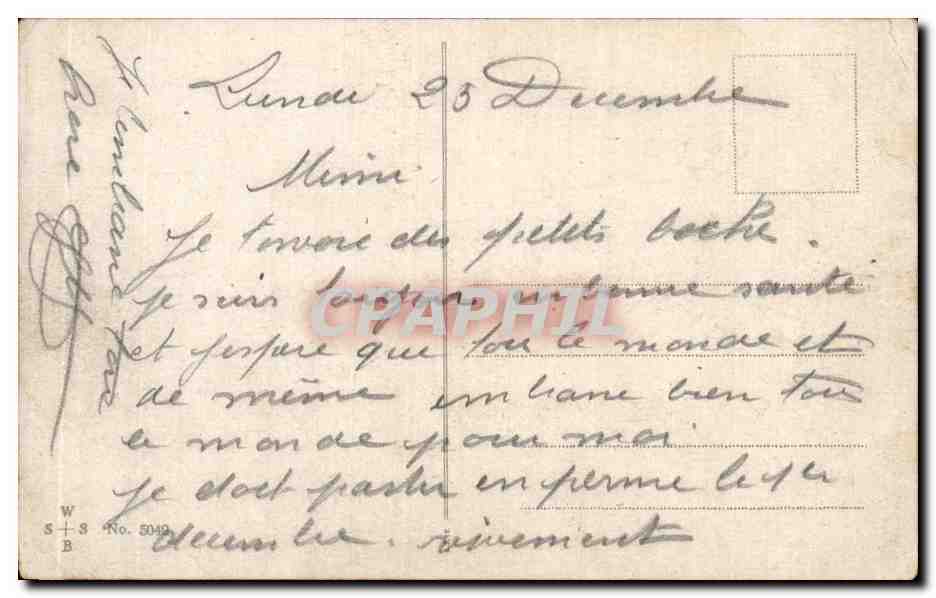 Lundi 25 Decembre
Mimi
Je t'anvoie des petits boche.
je suis toujours en bonne santé
et j'espere que tou le monde et
de même embrasse bien tou
le monde pour moi
Je doit partir en perme le 1er
decembre. vivement
Ton
W
S S No. 5049
B
CPAPHIL